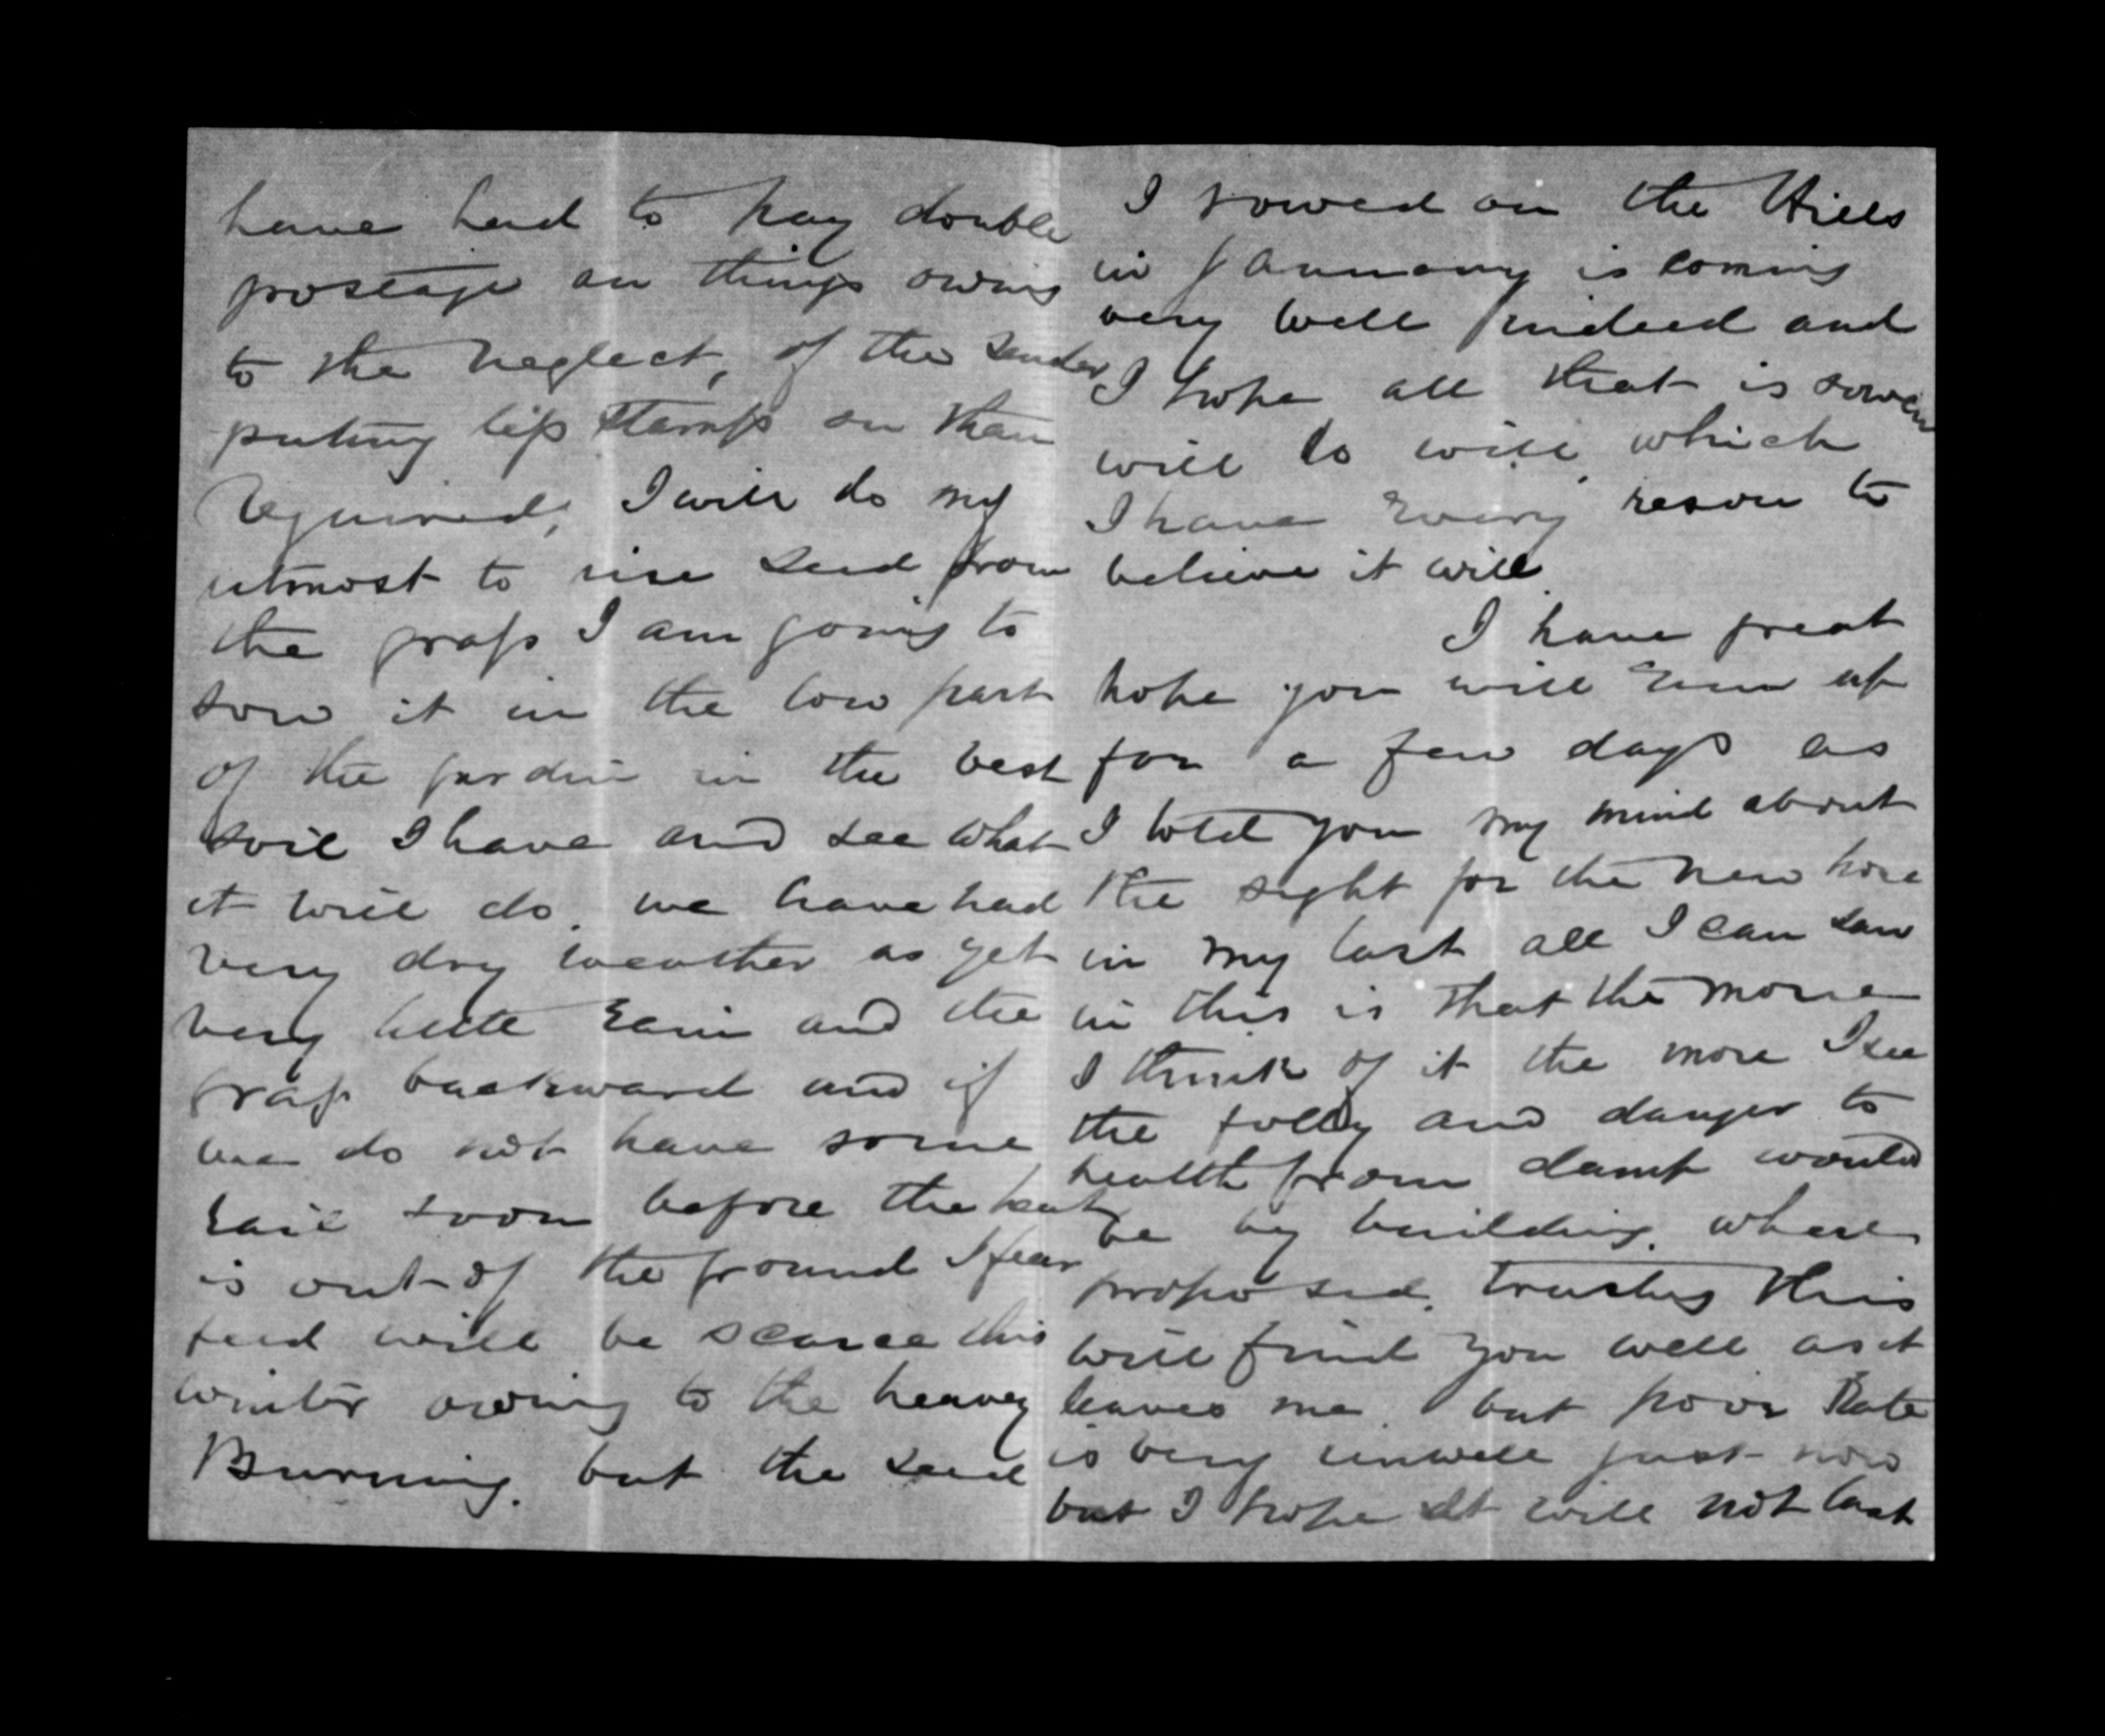 have had to pay double
prostage on things owing
to the neglect, of the sender
puting less stamps on than
required, I will do my
utmost to rise seed from
the grass I am going to
sow it in the low part
of the gardin in the best
soil I have and see what
it will do. we have had
very dry weather as yet
very little rain and the
grass backward and if
we do not have some
rail soon before the heat
is out of the ground I fear
feed will be scarce this
winter owing to the heavy
Burning. but the seed
I sowed on the Hills
in January is coming
very well indeed and
I hope all that is sowen
will do will, which
I have every reson to
believe it will.
I have great
hope you will run up
for a few days as
I told you my mind about
the sight for the new
in my last all I can saw
in this is that the more
I think of it the more I see
the folly and danger to
health from damp would
be by building. where
proposed. trusting this
will find you well as it
leaves me. but poor Kate
is very unwell just now
but I hope it will not last